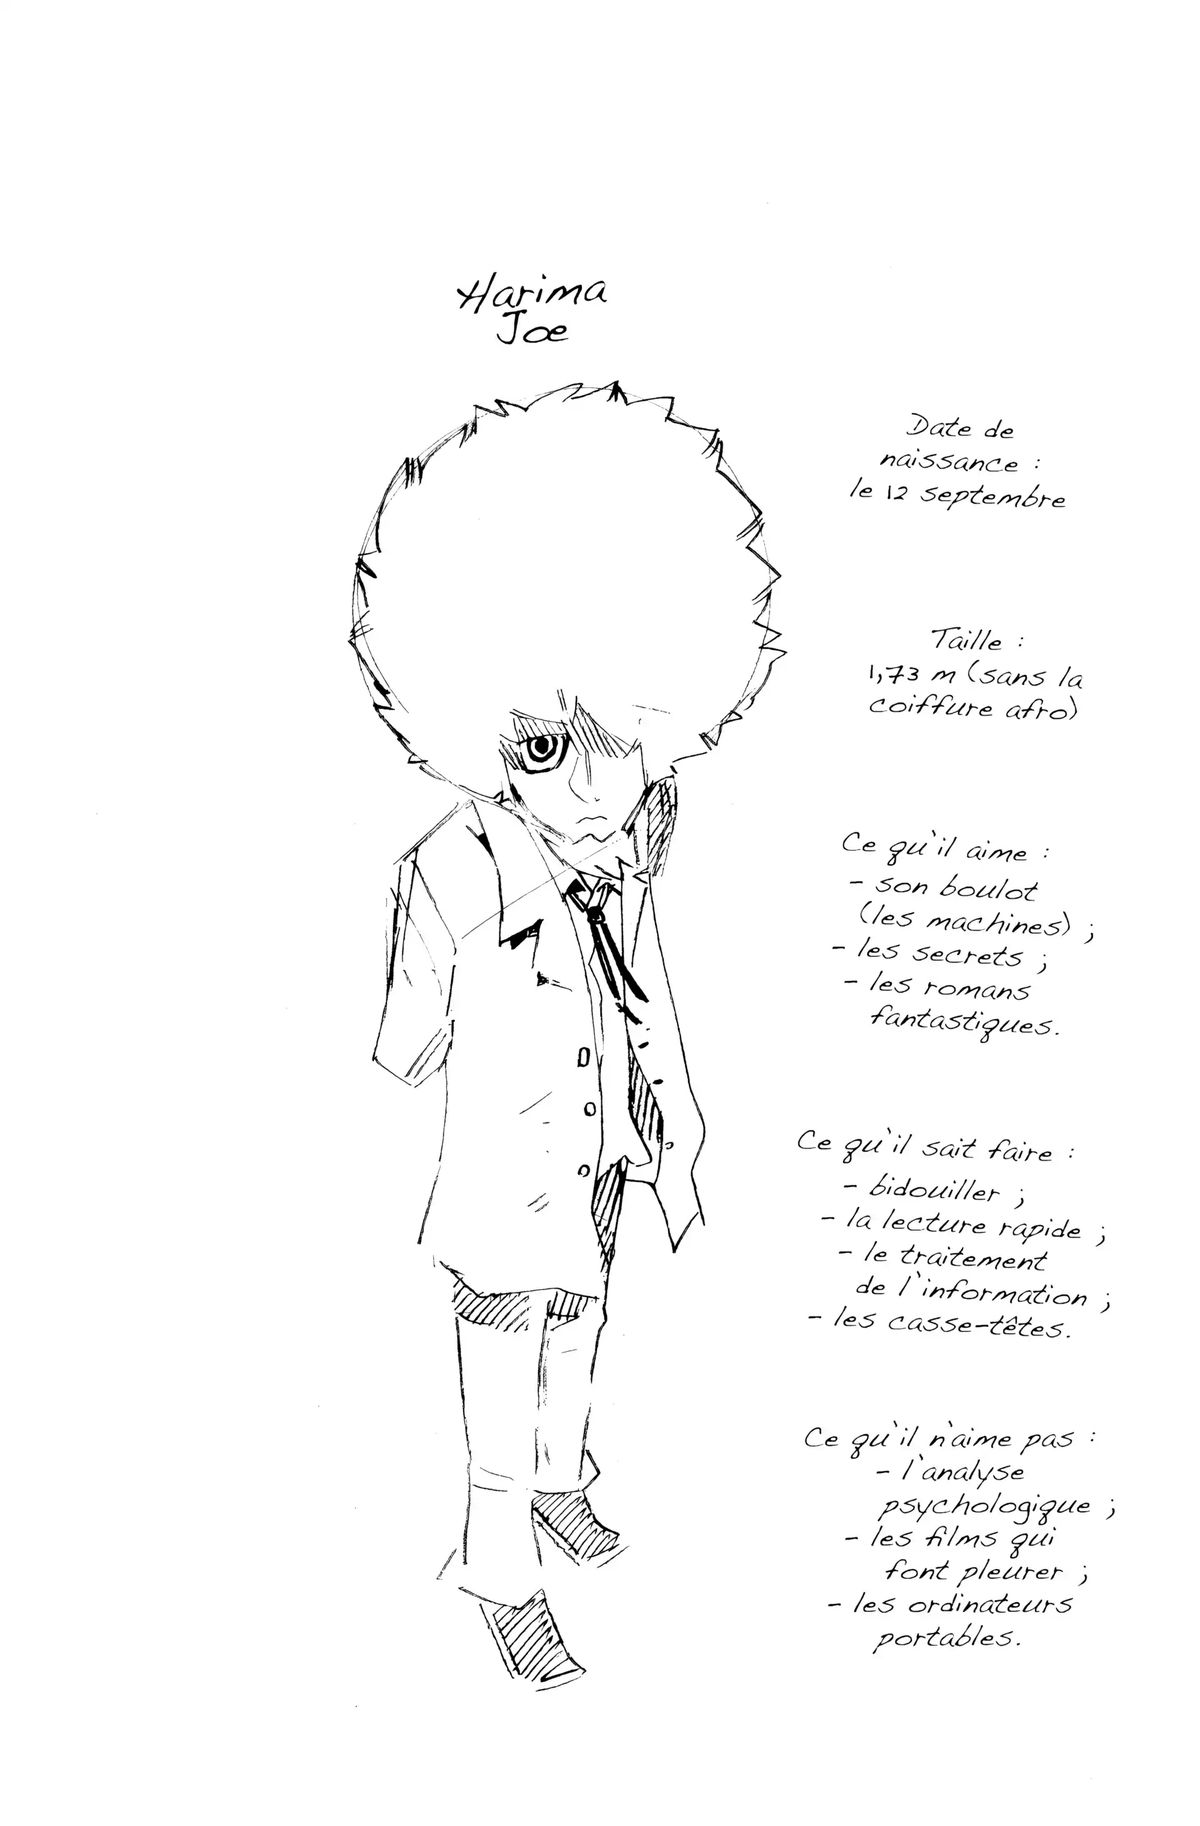 Harima
Joe
Date de
naissance :
le 12 septembre
Taille :
1,73 m (sans la
coiffure afro)
Ce qu'il aime :
- son boulot
(les machines) ;
- les secrets ;
- les romans
fantastiques.
Ce qu'il sait faire :
- bidouiller ;
- la lecture rapide ;
- le traitement
de l'information ;
- les casse-têtes.
Ce qu'il n'aime pas :
- l'analyse
psychologique ;
- les films qui
font pleurer ;
- les ordinateurs
portables.